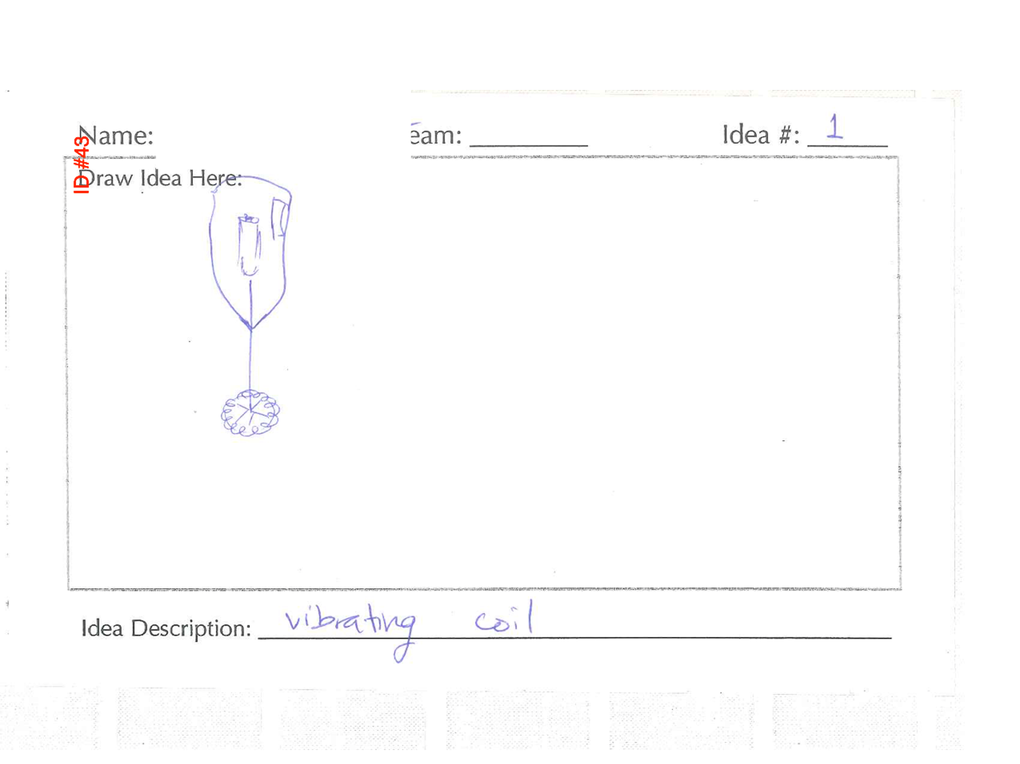 Name: eam: Idea #: 1
ID#43
Draw Idea Here:
Idea Description: vibrating coil